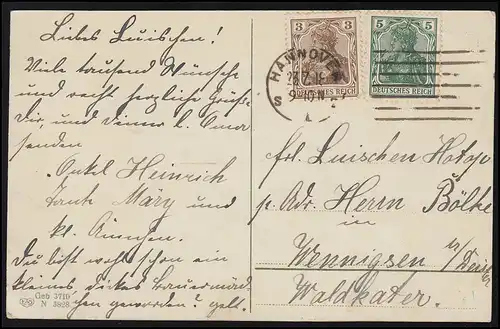 Liebes Luischen!
Viele tausend Wünsche
und recht herzliche Grüße
Dir, und deiner l. Oma
senden
Onkel Heinrich
Tante Märy und
kl. Ännchen.
Du bist wohl schon ein
kleines dickes Bauernmäd-
chen geworden? gelt.
Geb 3710
N 3928
3 3
DEUTSCHES REICH
5 5
DEUTSCHES REICH
HANNOVER
S
9-10 N
frl. Luischen
p. Adr. Herrn Bölke
in
Wennigsen a/Deister
Waldkater.